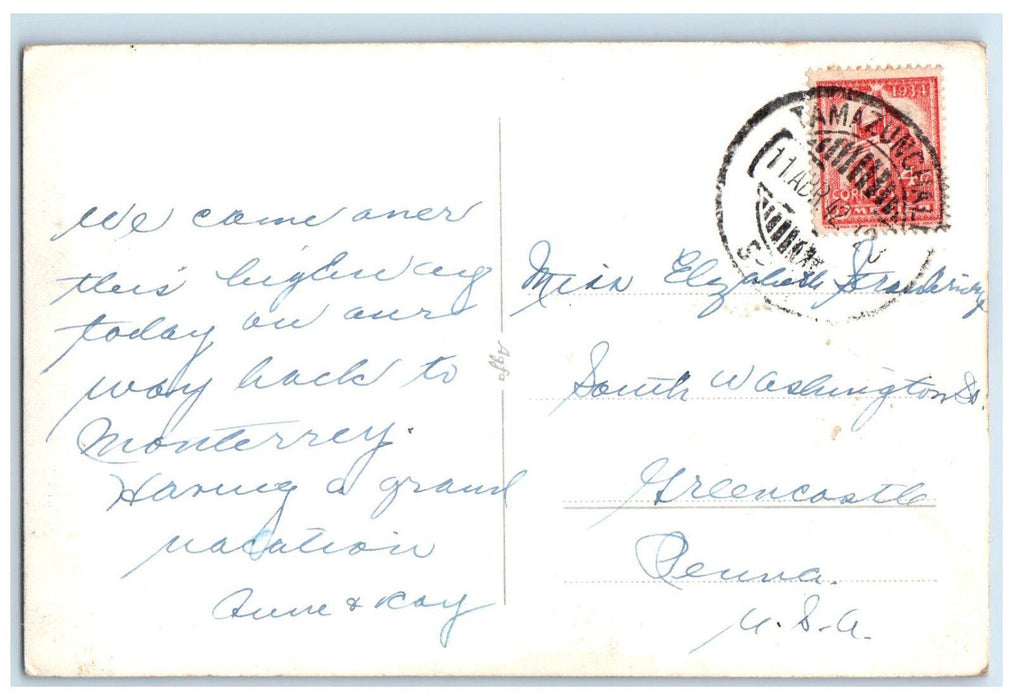 We came over
this highway
today on our
way back to
Monterrey.
Having a grand
vacation
Anne & Kay
Agfa
1934
TAMAZUNCHALE
11 ABR 42
S.
Miss Elizabeth
South Washington St.
Greencastle
Penna.
U.S.A.